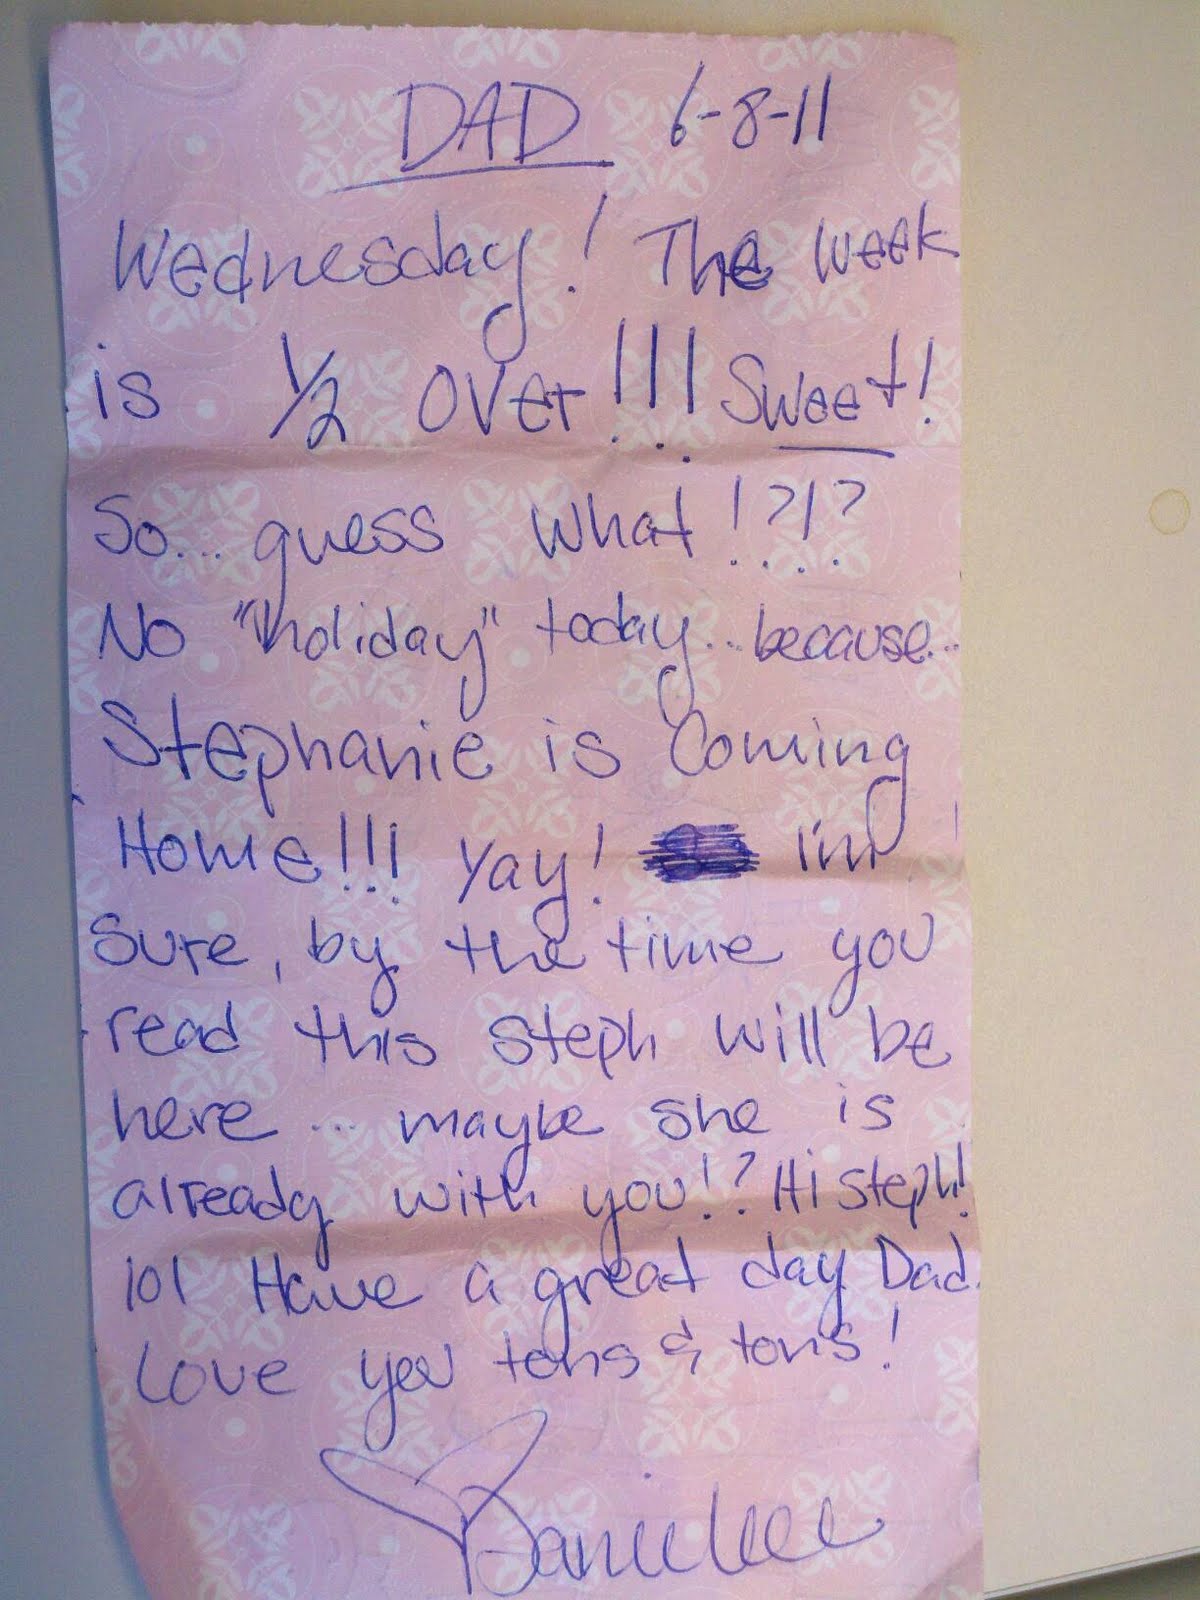 DAD 6-8-11
Wednesday! The week
is 1/2 over!!! Sweet!
So... guess what!?!?
No "holiday" today... because...
Stephanie is Coming
Home!!! Yay! I'm
Sure, by the time you
read this steph will be
here... maybe she is
already with you!? Hi steph!
lol Have a great day Dad.
Love you tons & tons!
Daniellee